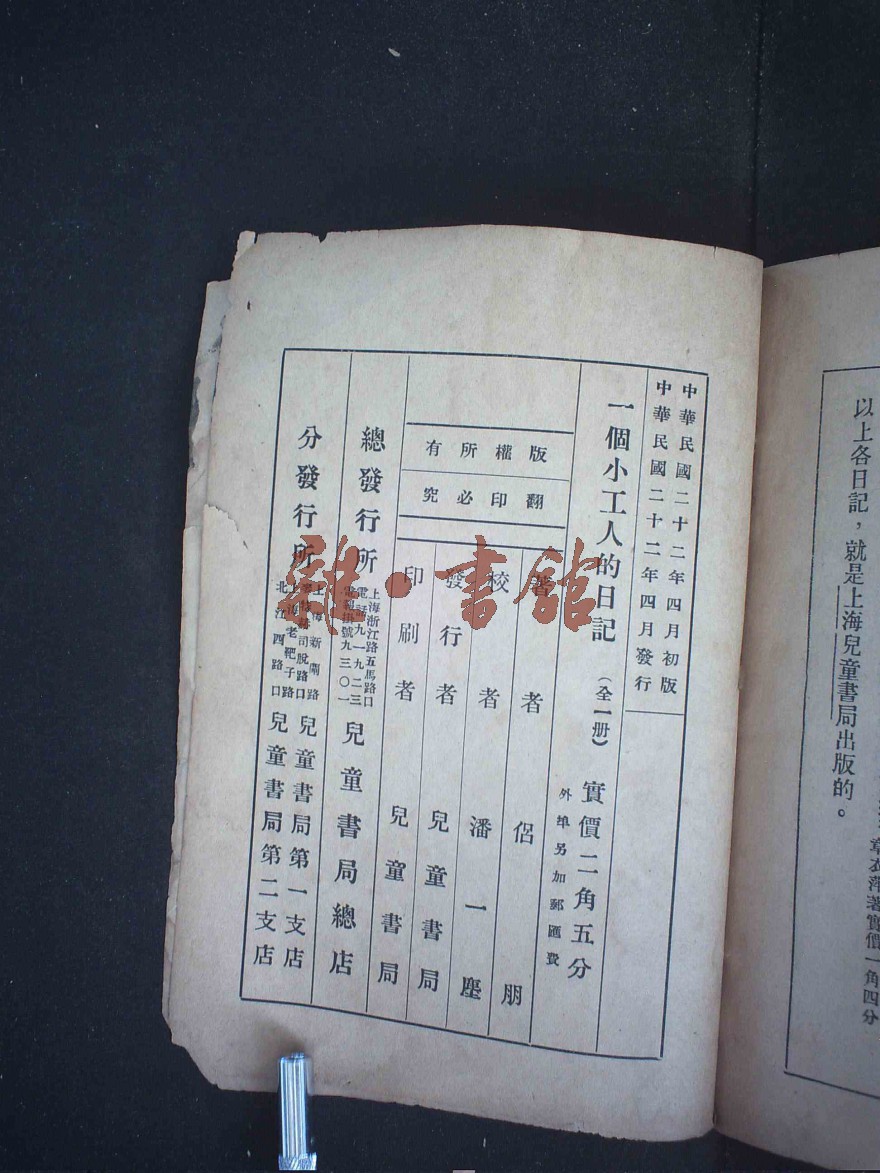 以上各日記，就是上海兒童書局出版的。
章衣萍著實價一角四分
中華民國二十二年四月初版
中華民國二十二年四月發行
一個小工人的日記
（全一册）
實價二角五分
外埠另加郵匯費
版權所有
翻印必究
著者 侶朋
校者 潘一塵
發行者 兒童書局
印刷者 兒童書局
總發行所
上海浙江路五馬路口
電話九一九二三
電報掛號九三〇一
兒童書局總店
分發行所
上海新閘路
脫路口
兒童書局第一支店
上海老靶子路
北江西路口
兒童書局第二支店
雜·書館